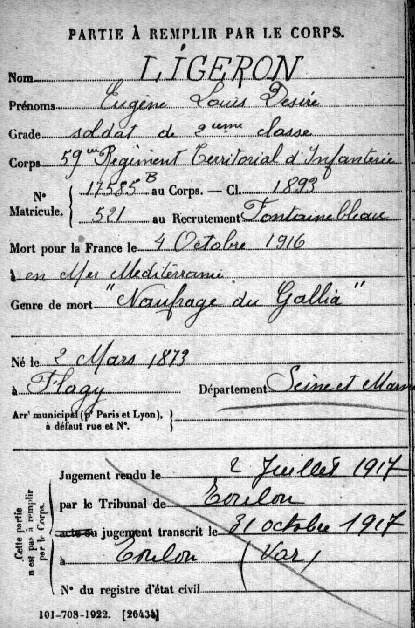 PARTIE À REMPLIR PAR LE CORPS.
Nom LIGERON
Prénoms Eugène Louis Désiré
Grade soldat de 2eme classe
Corps 59me Régiment Territorial d'Infanterie
N° Matricule. 17585 B au Corps. — Cl. 1893
521 au Recrutement Fontainebleau
Mort pour la France le 4 Octobre 1916
à en Mer Méditerranée
Genre de mort "Naufrage du Gallia"
Né le 2 Mars 1873
à Flagy Département Seine et Marne
Arr' municipal (p' Paris et Lyon),
à défaut rue et N°.
Cette partie n'est pas à remplir par le Corps.
Jugement rendu le 2 Juillet 1917
par le Tribunal de Toulon
acte ou jugement transcrit le 31 octobre 1917
à Toulon (Var)
N° du registre d'état civil
101-708-1922. [26434]